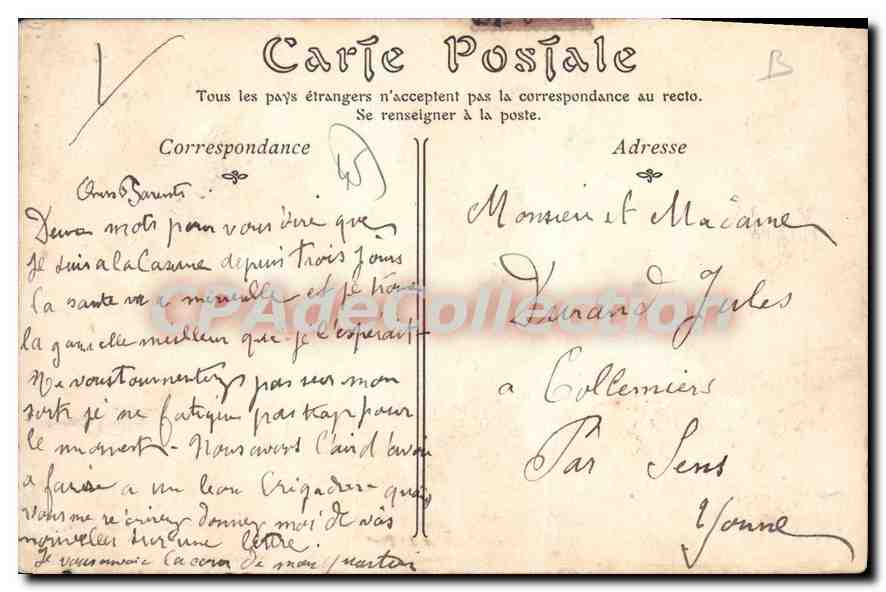 Carte Postale
Tous les pays étrangers n'acceptent pas la correspondance au recto.
Se renseigner à la poste.
Correspondance
Chers Parents
Deux mots pour vous dire que
Je suis a la Caserne depuis trois jours
la santé va a merveille et je trouve
la gamelle meilleur que je l'espérait
Ne vous tourmentez pas sur mon
sort je ne fatigue pas trop pour
le moment. Nous avons l'air d'avoir
a faire a un bon Brigadier quand
vous me récrirez donnez moi de vos
nouvelles sur une lettre.
Je vous envoie la cour de mon Quartier
Adresse
Monsieur et Madame
Durand Jules
a Collemiers
Par Sens
Yonne
B
CPAdeCollection